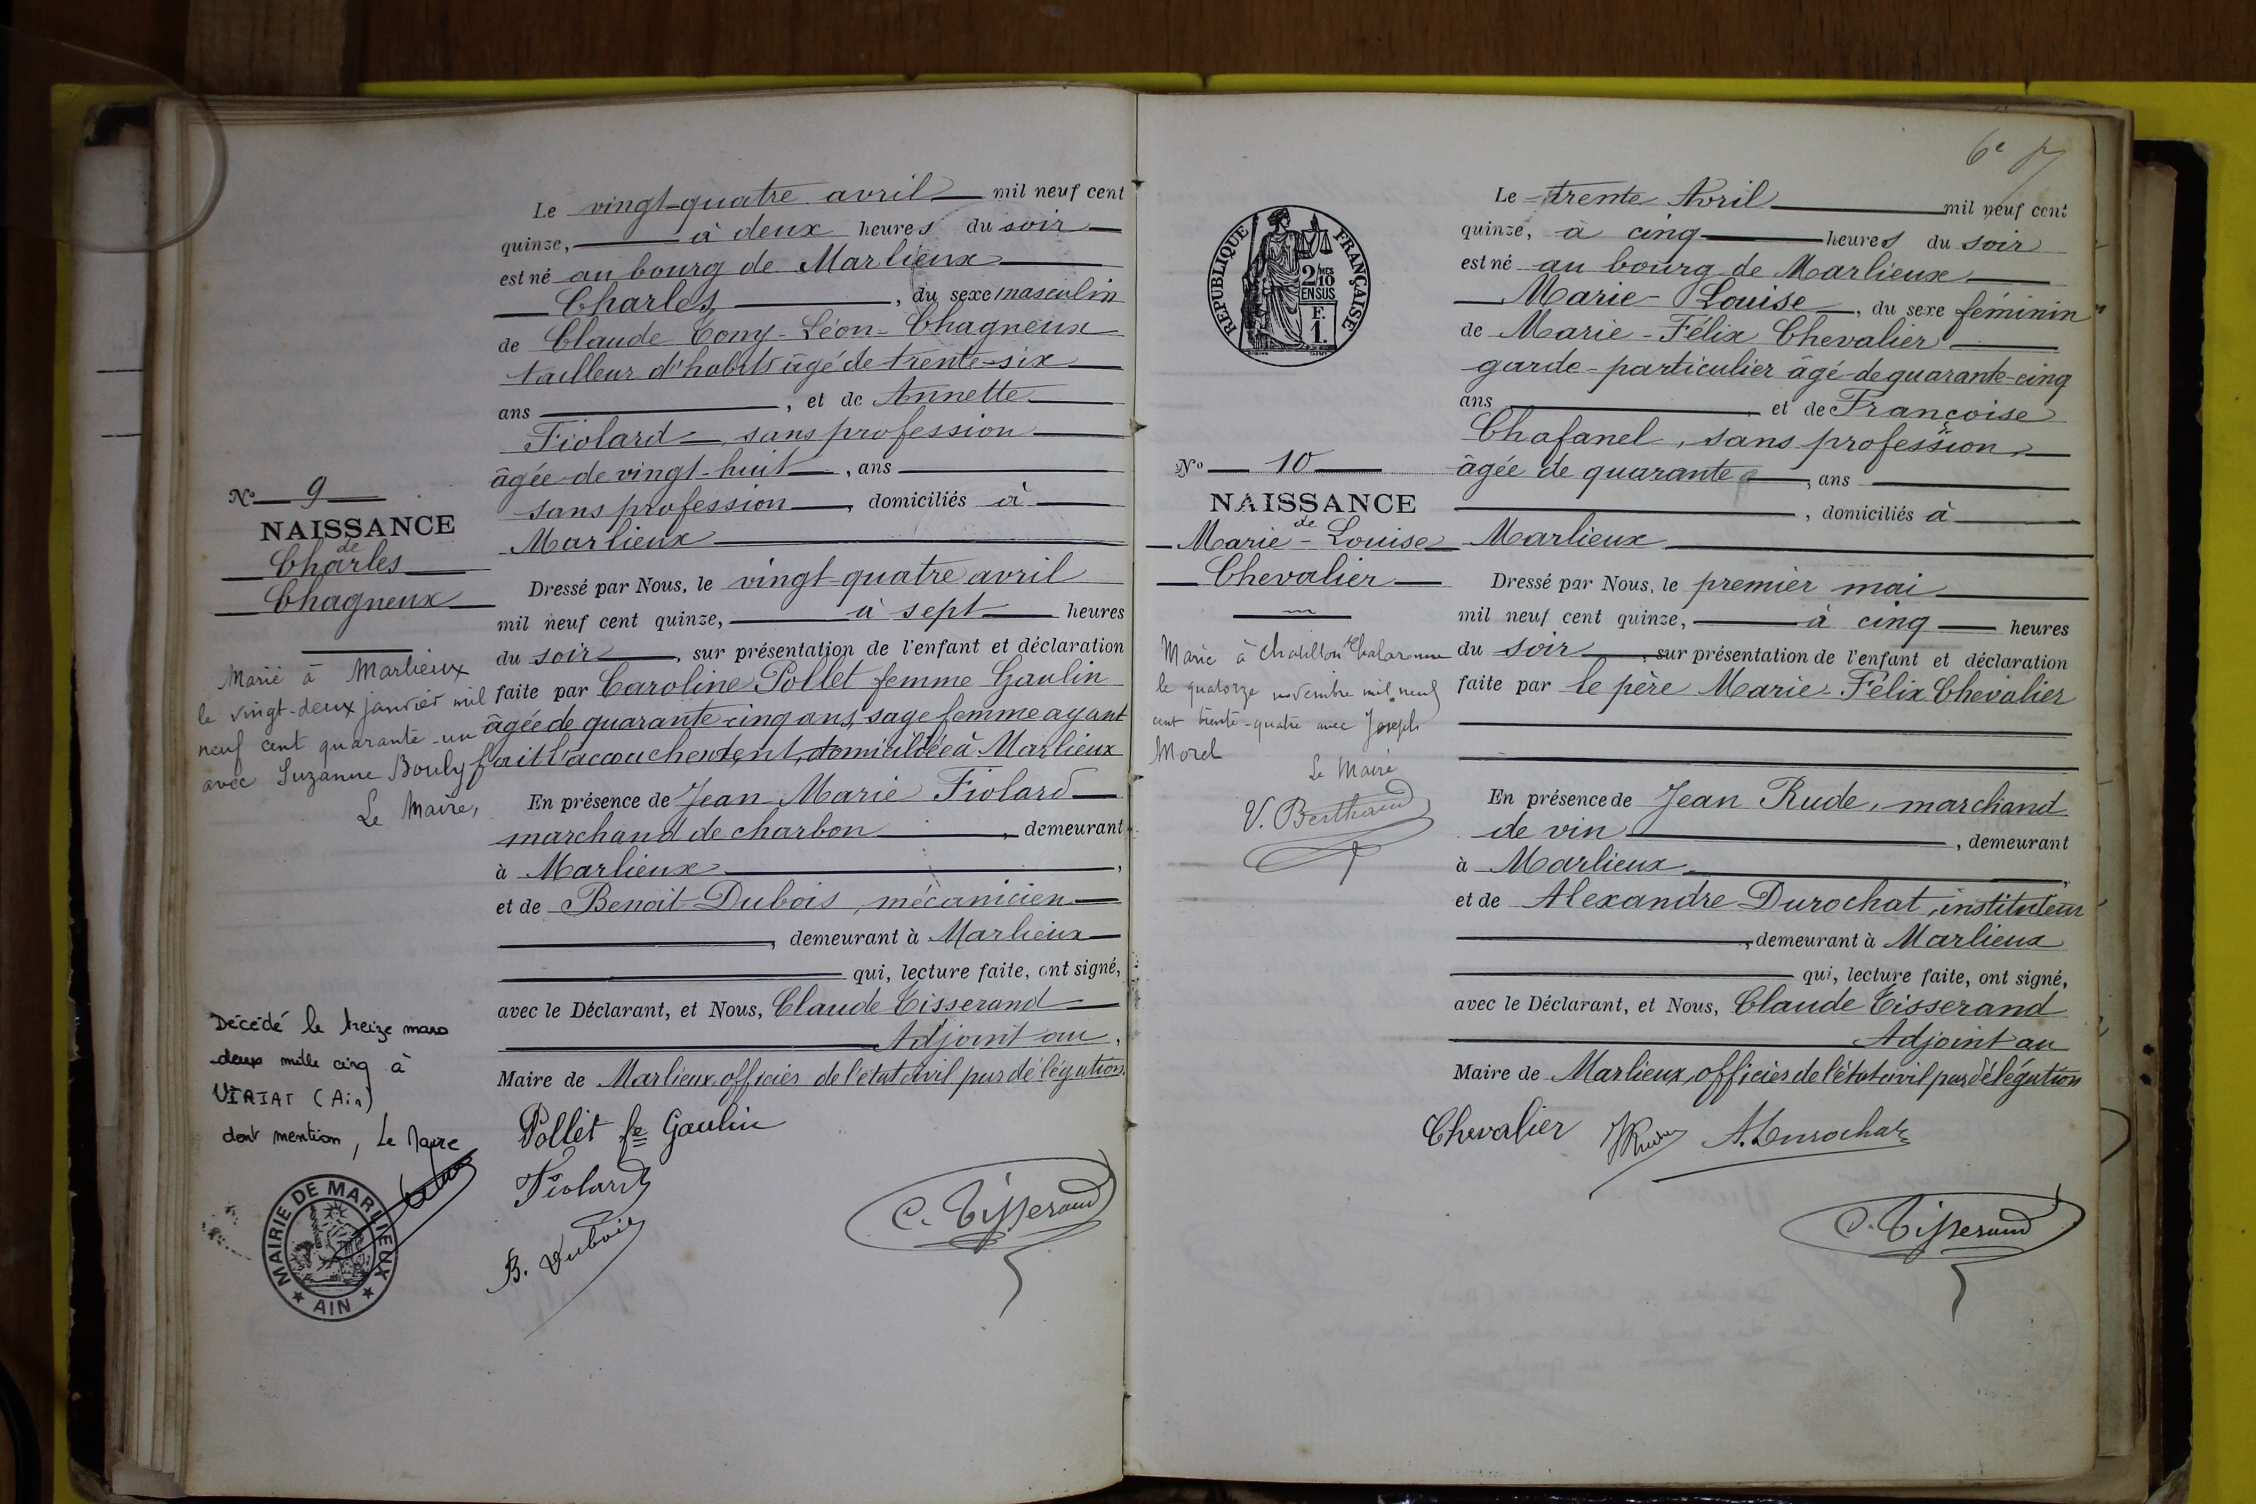 Le vingt-quatre avril mil neuf cent
quinze, à deux heures du soir
est né au bourg de Marlieux
Charles, du sexe masculin
de Claude Tony-Léon-Chagneux
tailleur d'habits âgé de trente-six
ans, et de Annette
Fiolard, sans profession
âgée de vingt-huit, ans
sans profession, domiciliés à
Marlieux
No 9
NAISSANCE
de
Charles
Chagneux
Dressé par Nous, le vingt-quatre avril
mil neuf cent quinze, à sept heures
du soir, sur présentation de l'enfant et déclaration
faite par Caroline Pollet femme Gaulin
âgée de quarante cinq ans, sage femme ayant
fait l'accouchement, domiciliée à Marlieux
En présence de Jean Marie Fiolard
marchand de charbon, demeurant
à Marlieux,
et de Benoit Dubois, mécanicien
, demeurant à Marlieux
qui, lecture faite, ont signé,
avec le Déclarant, et Nous, Claude Tisserand
Adjoint au,
Maire de Marlieux, officier de l'état civil par délégation.
Marié à Marlieux
le vingt-deux janvier mil
neuf cent quarante-un
avec Suzanne Bouly
Le Maire,
Décédé le treize mars
deux mille cinq à
VIRIAT (Ain)
dont mention, Le Maire
MAIRIE DE MARLIEUX
★ AIN ★
Pollet fe Gaulin
Fiolard
B. Dubois
C. Tisserand
6e
RÉPUBLIQUE FRANÇAISE
2/10 MES
EN SUS
F.
1.
Le trente Avril mil neuf cent
quinze, à cinq heures du soir
est né au bourg de Marlieux
Marie-Louise, du sexe féminin
de Marie-Félix Chevalier
garde-particulier âgé de quarante-cinq
ans, et de Françoise
Chafanel, sans profession
âgée de quarante, ans
, domiciliés à
Marlieux
No 10
NAISSANCE
de
Marie-Louise
Chevalier
Dressé par Nous, le premier mai
mil neuf cent quinze, à cinq heures
du soir, sur présentation de l'enfant et déclaration
faite par le père Marie-Félix Chevalier
En présence de Jean Rude, marchand
de vin, demeurant
à Marlieux,
et de Alexandre Durochat, instituteur
, demeurant à Marlieux
qui, lecture faite, ont signé,
avec le Déclarant, et Nous, Claude Tisserand
Adjoint au
Maire de Marlieux, officier de l'état civil par délégation
Marie à Chatillon Chalaronne
le quatorze novembre mil neuf
cent trente-quatre avec Joseph
Morel
Le Maire
V. Berthaud
Chevalier JRude A. Durochat
C. Tisserand